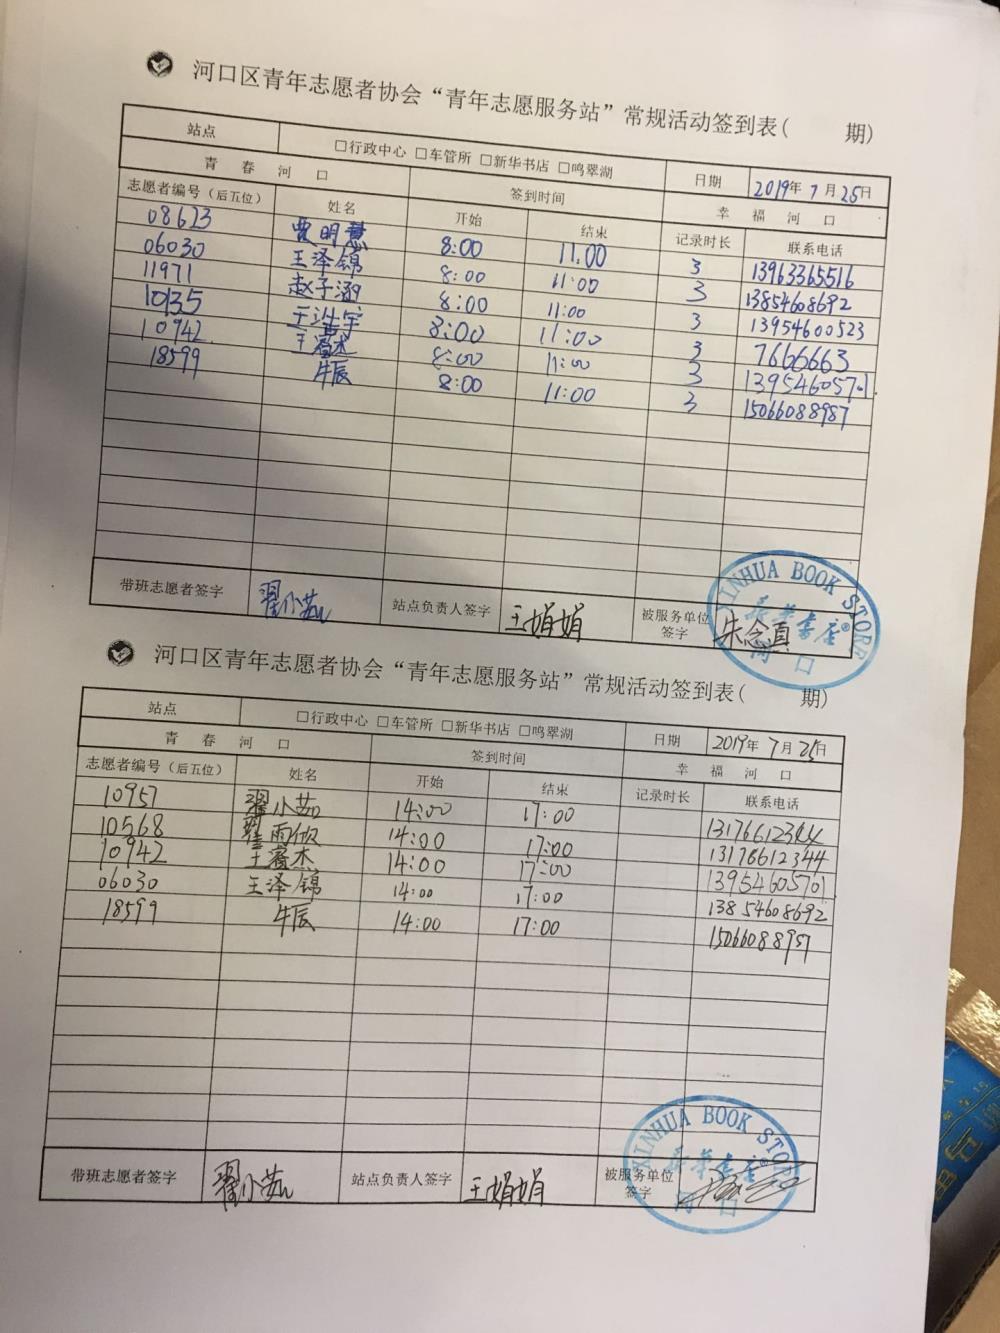 河口区青年志愿者协会“青年志愿服务站”常规活动签到表( 期)
站点 □行政中心 □车管所 □新华书店 □鸣翠湖 日期 2019年7月25日
青 春 河 口 签到时间 幸 福 河 口
志愿者编号（后五位） 姓名 开始 结束 记录时长 联系电话
08623 贾明慧 8:00 11.00 3 13963365516
06030 王泽锦 8:00 11:00 3 13854608692
11971 赵子涵 8:00 11:00 3 13954600523
10135 王浩宇 8:00 11:00 3 7666663
10942 王睿杰 8:00 11:00 3 13954605701
18599 牛辰 8:00 11:00 3 15066088987
带班志愿者签字 翟小茹 站点负责人签字 王娟娟 被服务单位签字 朱念真
XINHUA BOOK STORE
新华书店®
河 口
河口区青年志愿者协会“青年志愿服务站”常规活动签到表( 期)
站点 □行政中心 □车管所 □新华书店 □鸣翠湖 日期 2019年7月25日
青 春 河 口 签到时间 幸 福 河 口
志愿者编号（后五位） 姓名 开始 结束 记录时长 联系电话
10957 翟小茹 14:00 17:00 13176612344
10568 翟雨傲 14:00 17:00 13176612344
10942 王睿杰 14:00 17:00 13954605701
06030 王泽锦 14:00 17:00 13854608692
18599 牛辰 14:00 17:00 15066088987
带班志愿者签字 翟小茹 站点负责人签字 王娟娟 被服务单位签字
XINHUA BOOK STORE
新华书店®
河 口